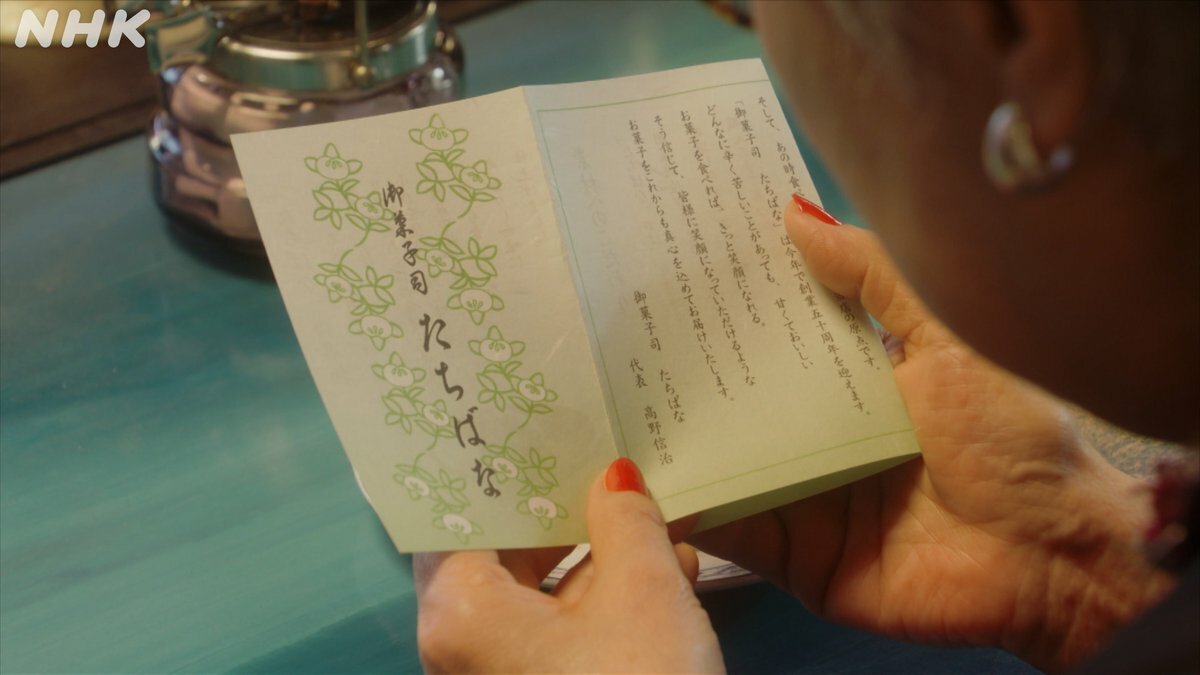 NHK
そして、あの時食 店の原点です。
「御菓子司　たちばな」は今年で創業五十周年を迎えます。
どんなに辛く苦しいことがあっても、甘くておいしい
お菓子を食べれば、きっと笑顔になれる。
そう信じて、皆様に笑顔になっていただけるような
お菓子をこれからも真心を込めてお届けいたします。
御菓子司　たちばな
代表　高野信治
御菓子司 たちばな